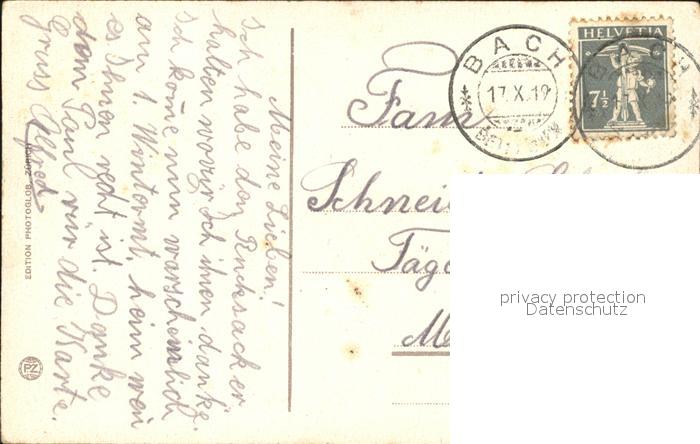 Meine Lieben!
Ich habe den Rucksack er
halten wofür ich ihnen danke.
Ich kome nun warscheinlich
am 1. Wintermt. heim wen
es Ihnen recht ist. Danke
dem Paul für die Karte.
Gruss Alfred
EDITION PHOTOGLOB, ZÜRICH
PZ
HELVETIA
7½
BACH
17.X.19
BACH
Fam
Schnei
Täge
privacy protection
Datenschutz